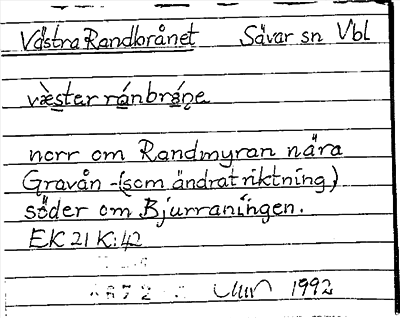 Västra Randbrånet Sävar sn Vbl
væster ránbråne
norr om Randmyran nära
Gravån -(som ändrat riktning)
söder om Bjurraningen.
EK 21 K:42
1992